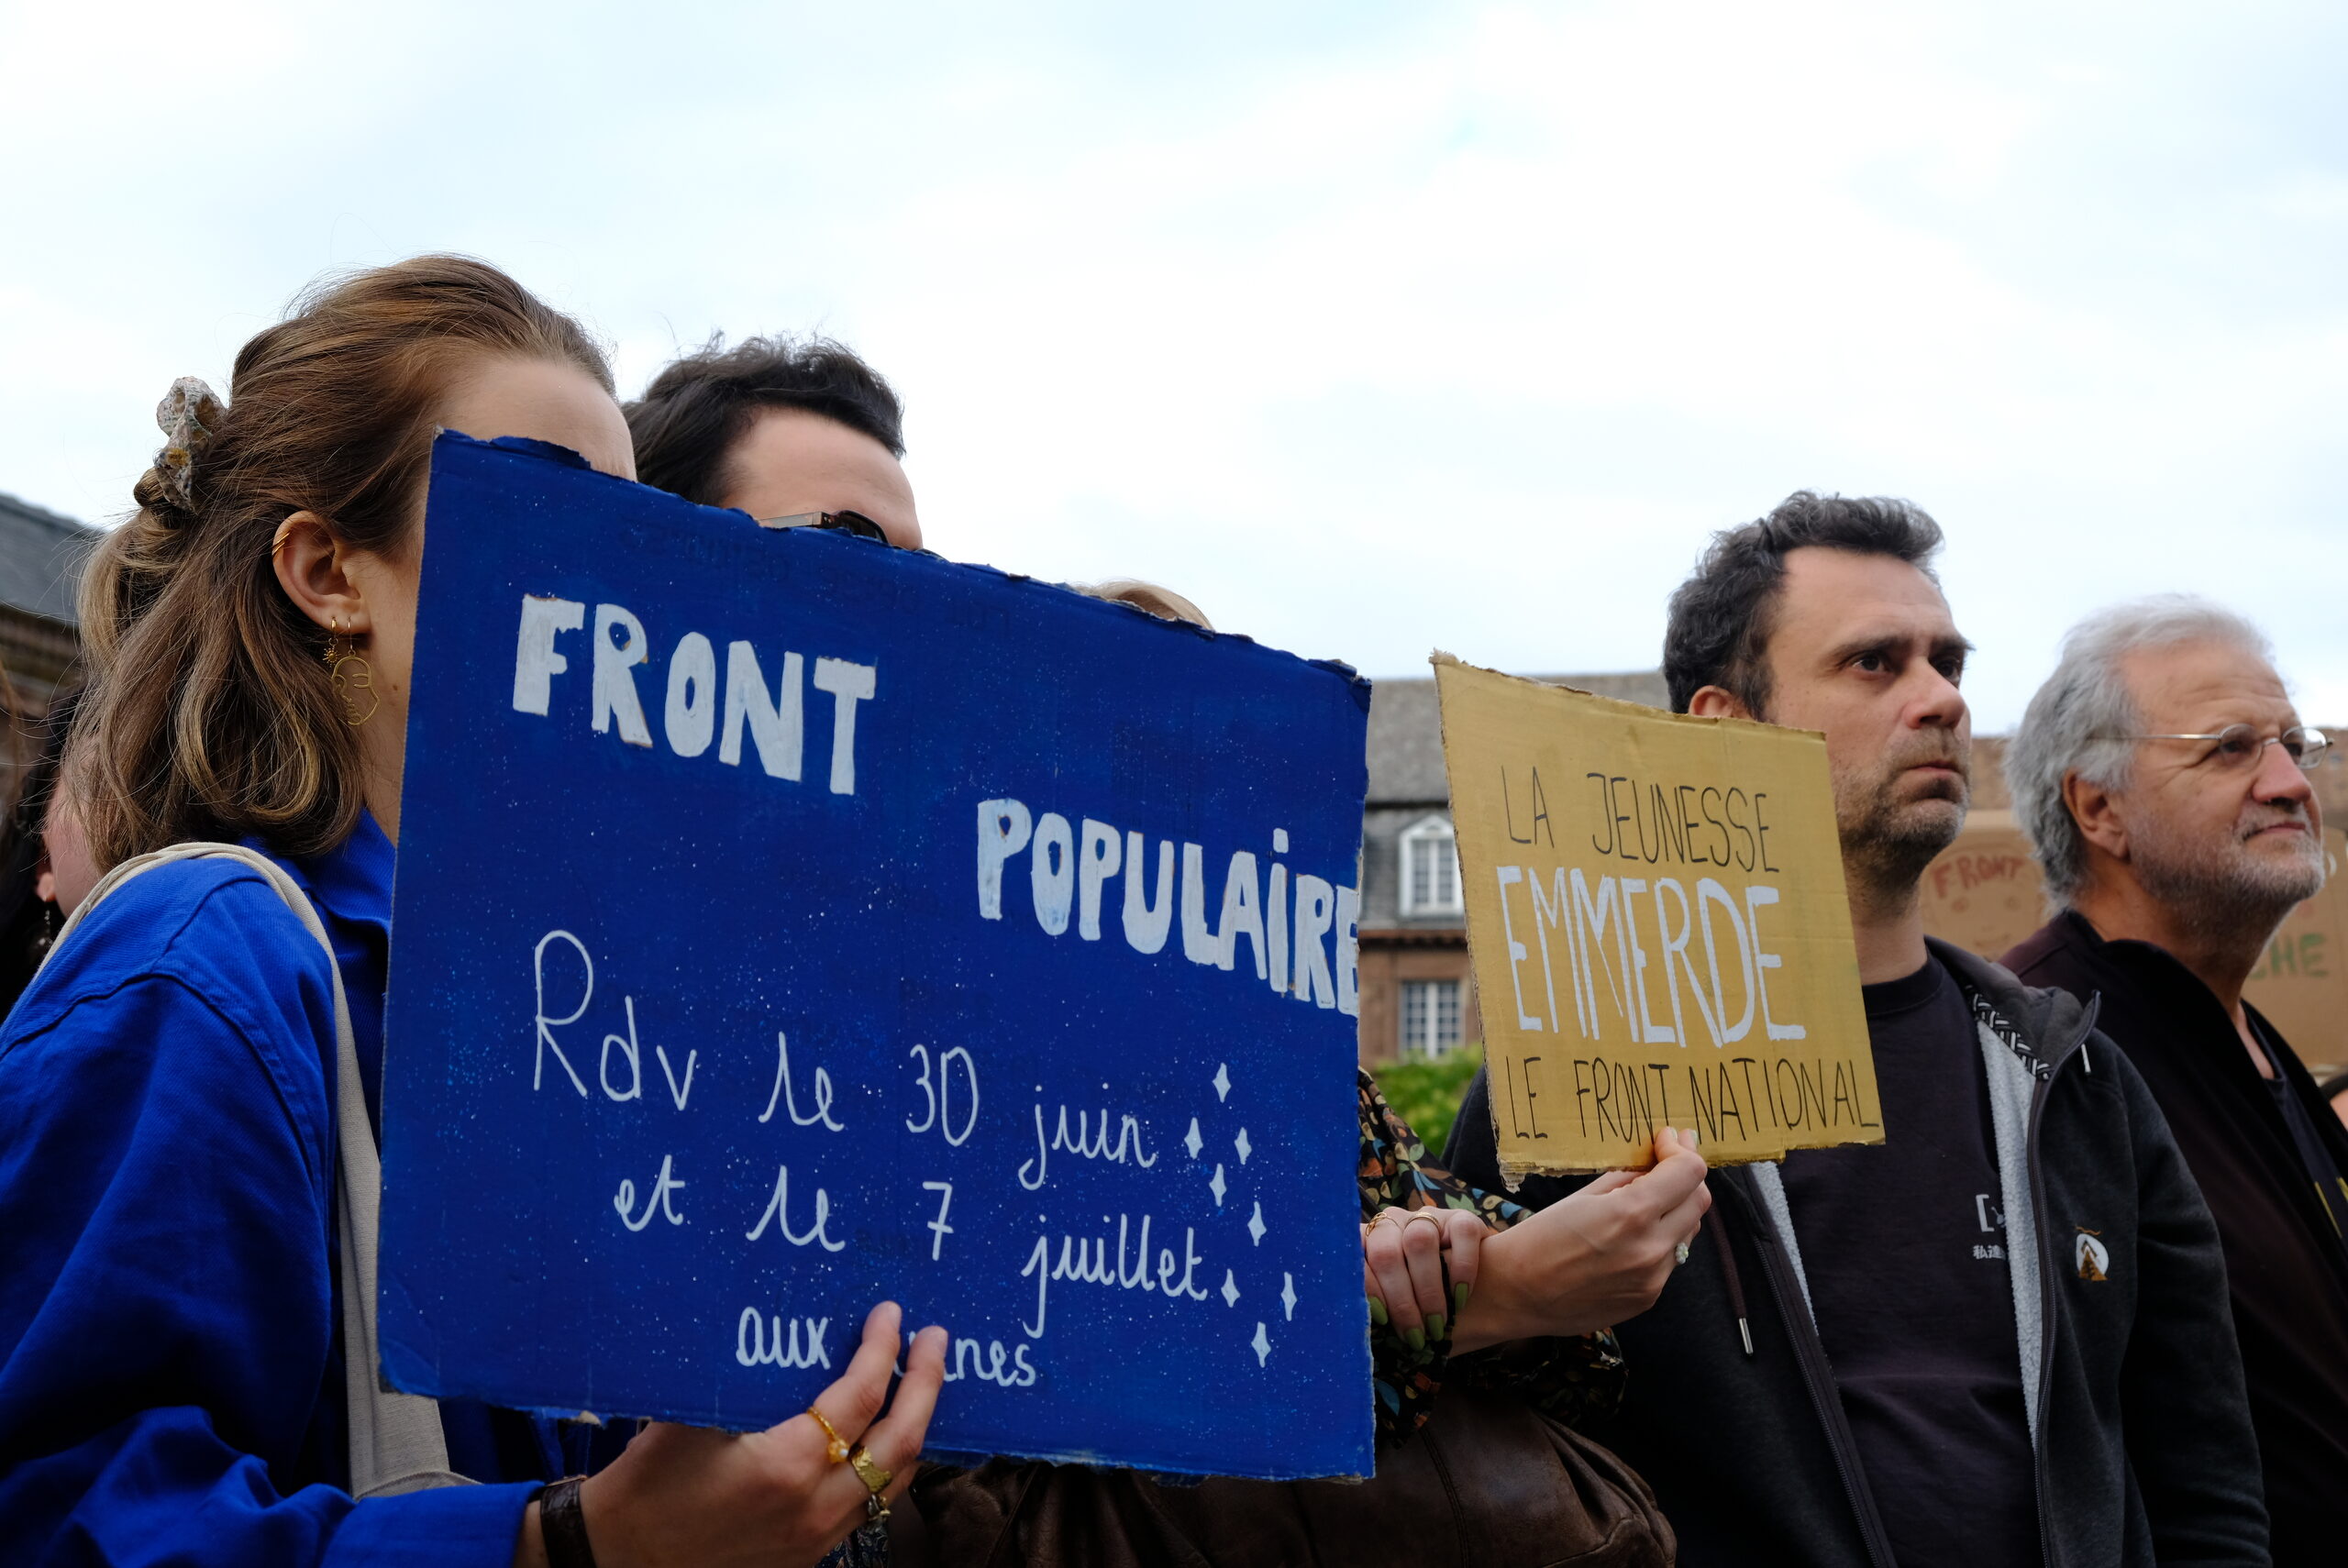 FRONT
POPULAIRE
Rdv le 30 juin
et le 7 juillet
aux
LA JEUNESSE
EMMERDE
LE FRONT NATIONAL
FRONT